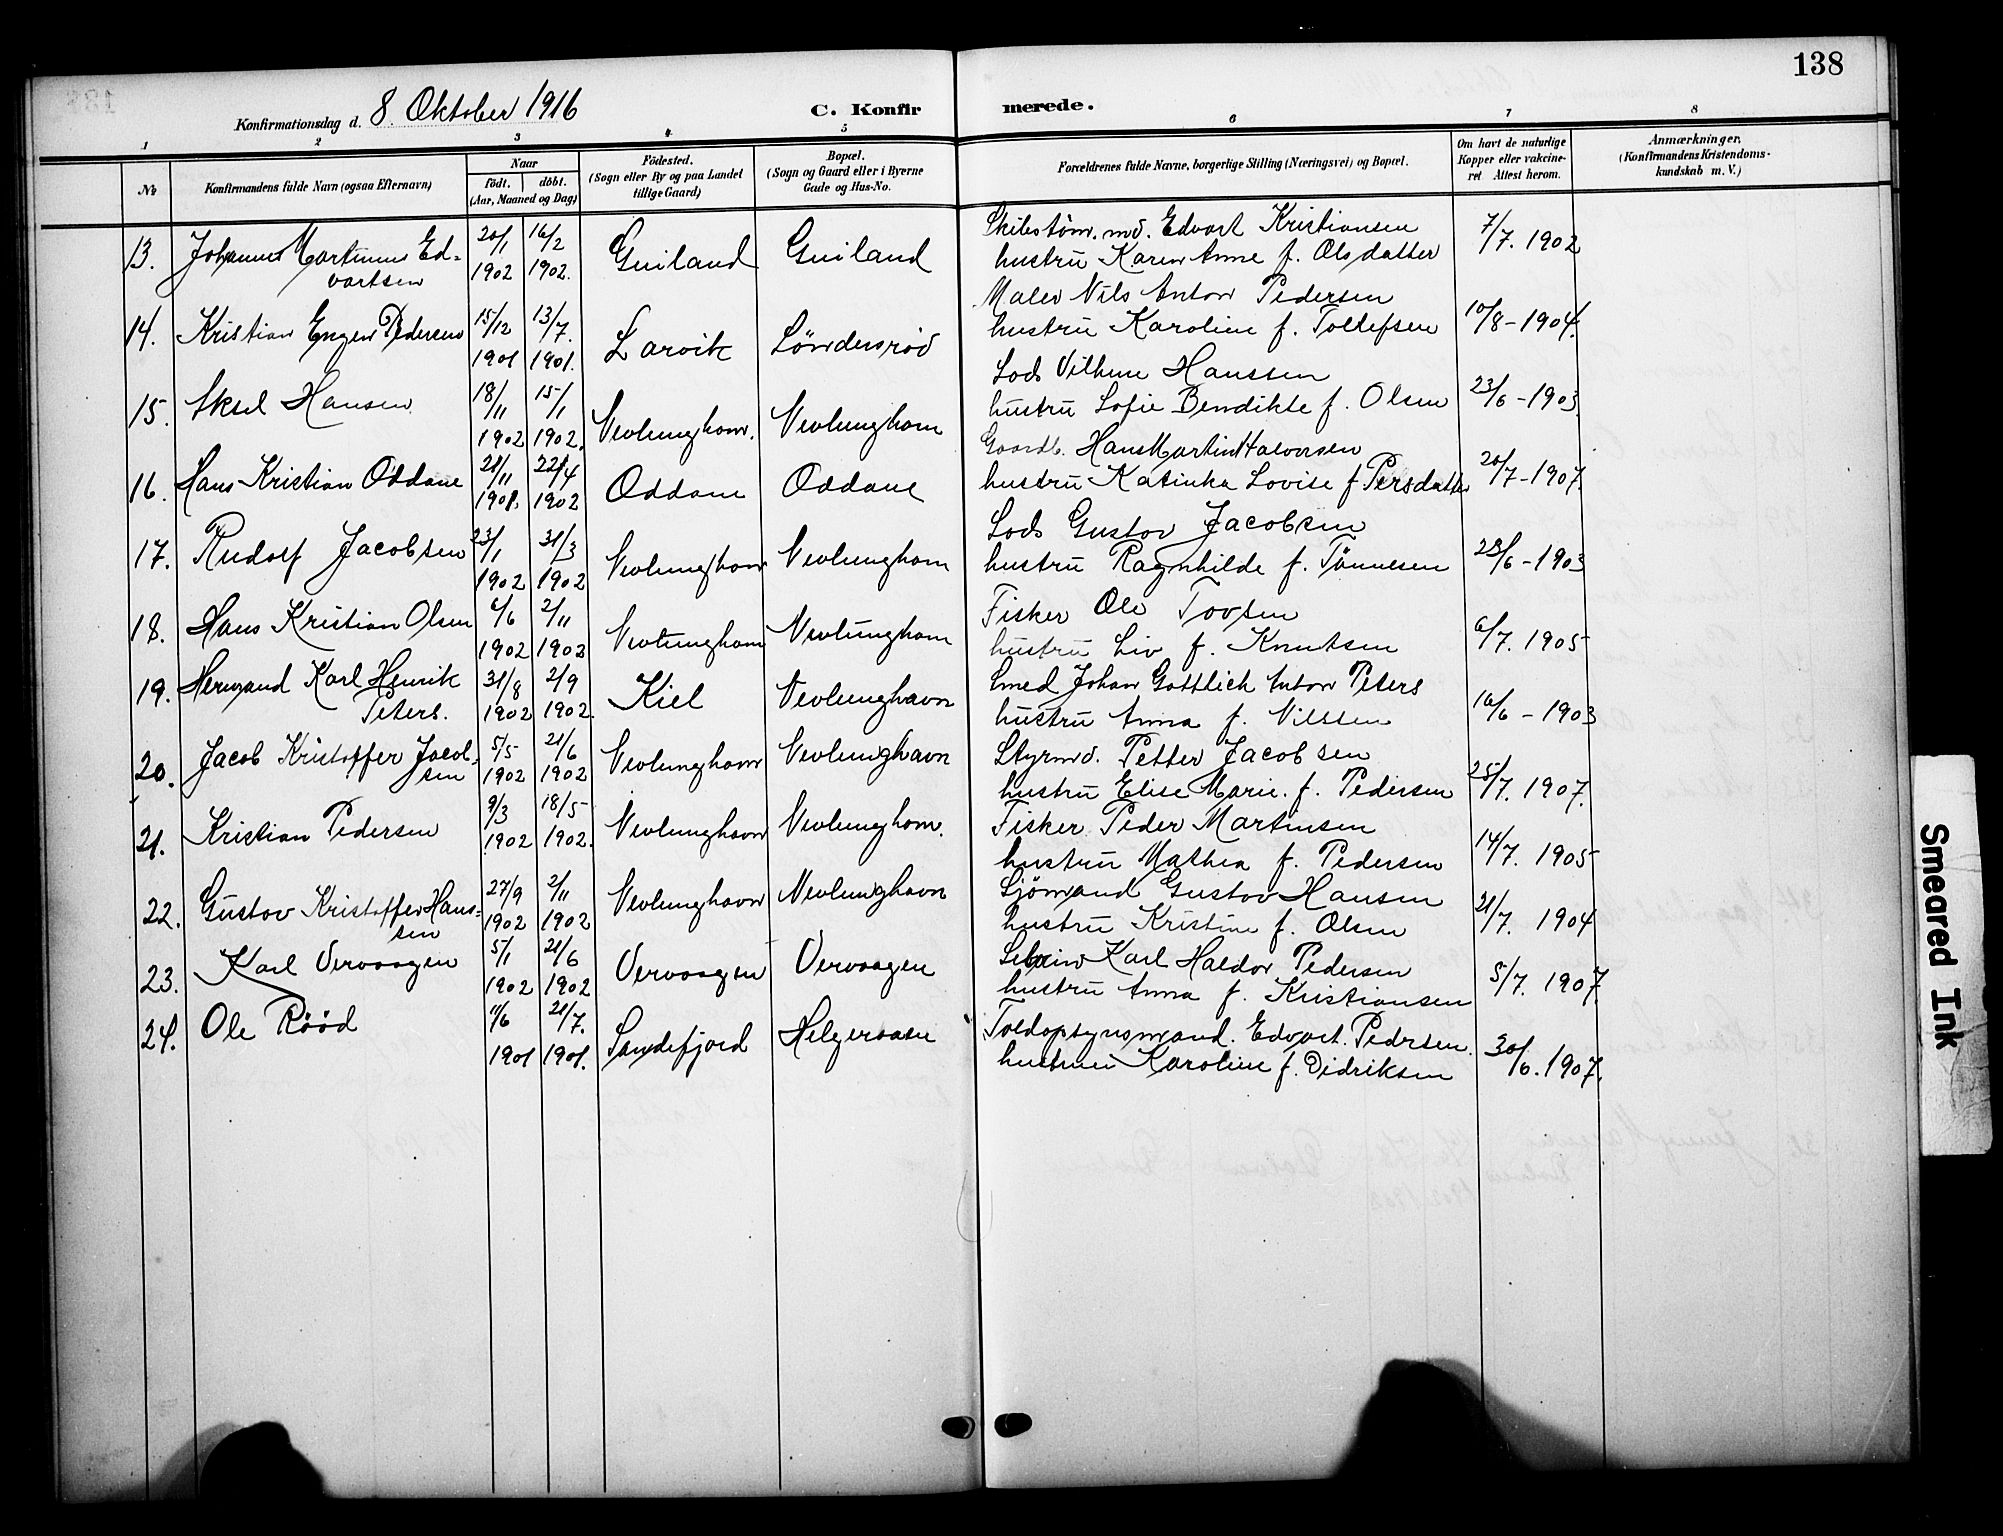 138
Konfirmationsdag d. 8. Oktober 1916
C. Konfirmerede.
1 2 3 4 5 6 7 8
No
Konfirmandens fulde Navn (ogsaa Efternavn)
Naar
födt. döbt.
(Aar, Maaned og Dag)
Födested.
(Sogn eller By og paa Landet
tillige Gaard)
Bopæl.
(Sogn og Gaard eller i Byerne
Gade og Hus-No.
Forældrenes fulde Navne, borgerlige Stilling (Næringsvei) og Bopæl.
Om havt de naturlige
Kopper eller vakcine-
ret Attest herom.
Anmærkninger,
(Konfirmandens Kristendoms-
kundskab m. V.)
13. Johannes Martinius Ed= 20/1 16/2 Guiland Guiland Skibstöm. md. Edvart Kristiansen 7/7. 1902
vartsen 1902 1902. hustru Karen Anne f. Olsdatter
14. Kristian Engen Pedersen 15/12 13/7. Larvik Löndersröd Maler Nils Anton Pedersen 10/8-1904.
1901 1901. hustru Karoline f. Tollefsen
15. Aksel Hansen 18/11 15/1 Nevlunghavn. Nevlunghavn Lods Vilhem Hanssen 23/6-1903
1902 1902. hustru Sofie Bendikte f. Olsen
16. Hans Kristian Oddane 21/11 22/4 Oddane Oddane Gaardb. Hans Martin Halvorsen 20/7-1907.
1901. 1902 hustru Katinka Lovise f. Persdatter
17. Rudolf Jacobsen 23/1 31/3 Nevlunghavn Nevlunghavn Lods Gustav Jacobsen 23/6-1903
1902 1902 hustru Ragnhilde f. Tönnesen
18. Hans Kristian Olsen 6/6 2/11 Nevlunghavn Nevlunghavn Fisker Ole Tovsen 6/7. 1905
1902 1902 hustru Liv f. Knutsen
19. Hermand Karl Henrik 31/8 2/9 Kiel Nevlunghavn Smed Johan Gottlich Anton Peters 16/6-1903
Peters. 1902 1902. hustru Anna f. Nilssen
20. Jacob Kristoffer Jacob= 5/5 21/6 Nevlunghavn Nevlunghavn Styrmd. Petter Jacobsen 25/7. 1907.
sen 1902 1902 hustru Elise Marie. f. Pedersen
21. Kristian Pedersen 9/3 18/5 Nevlunghavn Nevlunghavn. Fisker Peder Martinsen 14/7. 1905
1902 1902. hustru Mathea f. Pedersen
22. Gustav Kristoffer Hans= 27/9 2/11 Nevlunghavn Nevlunghavn Sjömand Gustav Hansen 21/7. 1904
sen 1902 1902 hustru Kristine f. Olsen
23. Karl Vervaagen 5/1 21/6 Vervaagen Vervaagen Karl Haldor Pedersen 5/7. 1907.
1902 1902 hustru Anna f. Kristiansen
24. Ole Rööd 11/6 21/7. Sandefjord Helgeroaen Toldopsynsmand. Edvart. Pedersen. 30/6. 1907.
1901 1901. hustru Karoline f. Didriksen
Smeared Ink